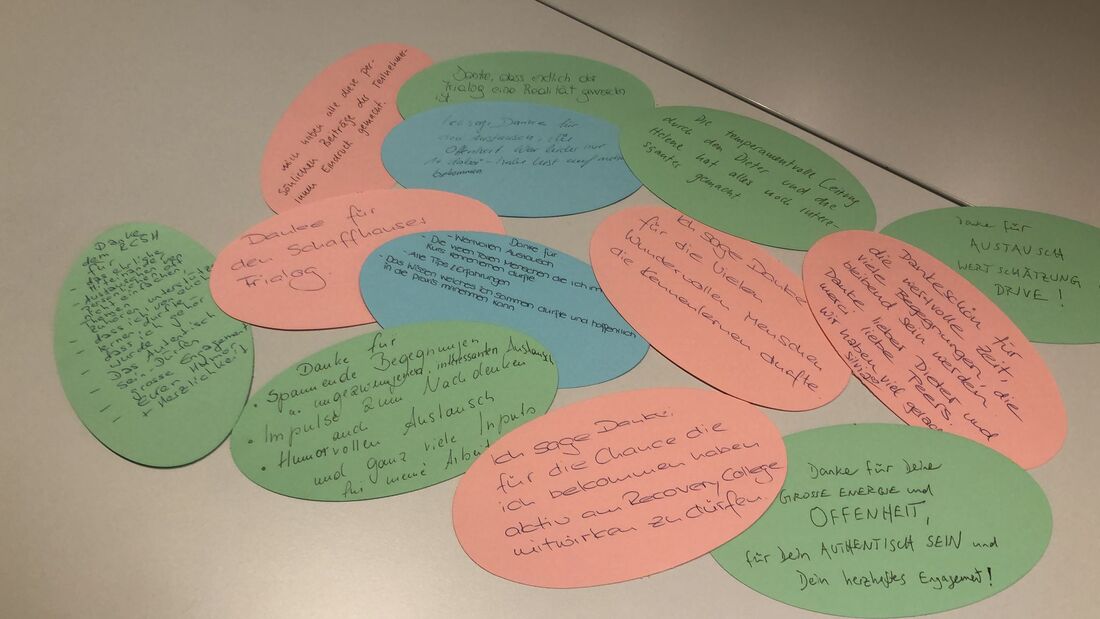 mich haben alle diese per-
sönlichen Beiträge der Teilnehmer-
innen Eindruck gemacht.
Danke, dass endlich der
Trialog eine Realität geworden
ist
Ich sage Danke für
den Austausch, die
Offenheit War leider nur
1x dabei - habe Lust auf mehr
bekommen
Die temperamentvolle Leitung
durch den Dieter und die
Helene hat alles noch interes-
santer gemacht
Danke für
AUSTAUSCH
WERTSCHÄTZUNG
DRIVE!
Danke für
den Schaffhauser
Trialog.
Danke für
- Wertvollen Austausch
- Die vielen tollen Menschen die ich im
Kurs kennenlernen durfte
- Alle Tips / Erfahrungen
- Das Wissen welches ich sammeln durfte und hoffentlich
in die Praxis mitnehmen kann
Ich sage Danke
für die vielen
wundervollen Menschen
die kennenlernen durfte.
Dankeschön für
die wertvolle Zeit,
viele Begegnungen, die
bleibend sein werden.
Danke lieber Dieter und
merci liebe Peers.
wir haben viel gelacht
Danke
dem RCSH
für
Austausch
Themen
dass ich
lernen durfte
dass ich gehört
wurde
Das Authentisch
Sein-Dürfen
Grosse Engagement
Euren Humor
+ Herzlichkeit
Danke für
• Spannende Begegnungen
u. ungezwungenen, interessanten Austausch
• Impulse zum Nachdenken
auch
• Humorvollen Austausch
und ganz viele Inputs
für meine Arbeit
Ich sage Danke:
für die Chance die
ich bekommen haben
aktiv am Recovery College
mitwirken zu dürfen.
Danke für Deine
GROSSE ENERGIE und
OFFENHEIT,
für Dein AUTHENTISCH SEIN und
Dein herzhaftes Engagement!